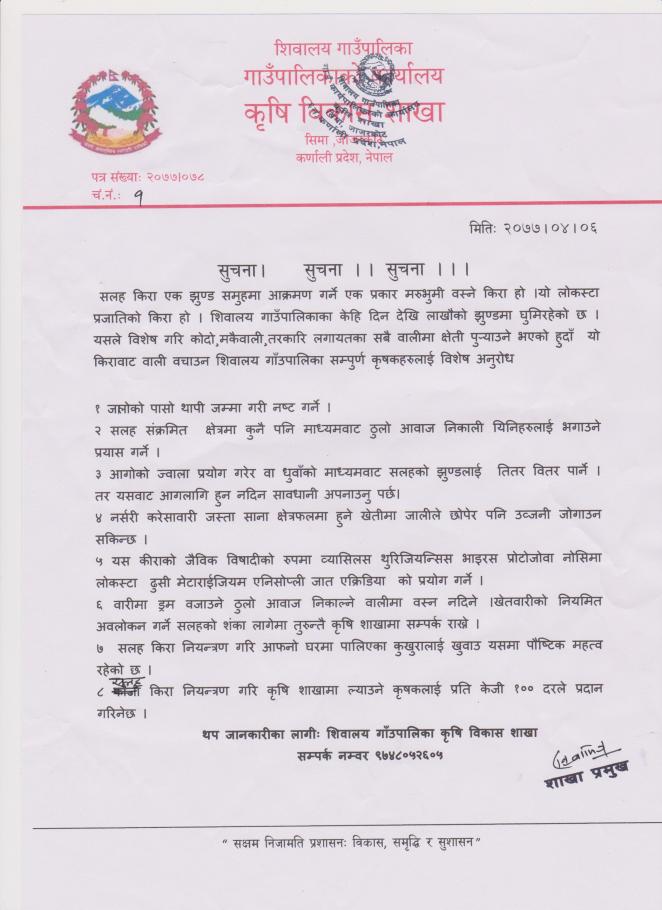 शिवालय गाउँपालिका
गाउँपालिकाको कार्यालय
कृषि विकास शाखा
सिमा ,जाजरकोट
कर्णाली प्रदेश, नेपाल
पत्र संख्याः २०७७।०७८
चं.नं.: १
मितिः २०७७।०४।०६
सुचना। सुचना ।। सुचना ।।।
सलह किरा एक झुण्ड समुहमा आक्रमण गर्ने एक प्रकार मरुभुमी वस्ने किरा हो ।यो लोकस्टा
प्रजातिको किरा हो । शिवालय गाउँपालिकाका केहि दिन देखि लाखौको झुण्डमा घुमिरहेको छ ।
यसले विशेष गरि कोदो,मकैवाली,तरकारि लगायतका सबै वालीमा क्षेती पुर्‍याउने भएको हुदाँ यो
किरावाट वाली वचाउन शिवालय गाँउपालिका सम्पुर्ण कृषकहरुलाई विशेष अनुरोध
१ जालोको पासो थापी जम्मा गरी नष्ट गर्ने ।
२ सलह संक्रमित क्षेत्रमा कुनै पनि माध्यमवाट ठुलो आवाज निकाली यिनिहरुलाई भगाउने
प्रयास गर्ने ।
३ आगोको ज्वाला प्रयोग गरेर वा धुवाँको माध्यमवाट सलहको झुण्डलाई तितर वितर पार्ने ।
तर यसवाट आगलागि हुन नदिन सावधानी अपनाउनु पर्छ।
४ नर्सरी करेसावारी जस्ता साना क्षेत्रफलमा हुने खेतीमा जालीले छोपेर पनि उव्जनी जोगाउन
सकिन्छ ।
५ यस कीराको जैविक विषादीको रुपमा व्यासिलस थुरिजियन्सिस भाइरस प्रोटोजोवा नोसिमा
लोकस्टा ढुसी मेटाराईजियम एनिसोप्ली जात एक्रिडिया को प्रयोग गर्ने ।
६ वारीमा ड्रम वजाउने ठुलो आवाज निकाल्ने वालीमा वस्न नदिने ।खेतवारीको नियमित
अवलोकन गर्ने सलहको शंका लागेमा तुरुन्तै कृषि शाखामा सम्पर्क राख्ने ।
७ सलह किरा नियन्त्रण गरि आफनो घरमा पालिएका कुखुरालाई खुवाउ यसमा पौष्टिक महत्व
रहेको छ ।
सलह
८ फौजी किरा नियन्त्रण गरि कृषि शाखामा ल्याउने कृषकलाई प्रति केजी १०० दरले प्रदान
गरिनेछ ।
थप जानकारीका लागीः शिवालय गाँउपालिका कृषि विकास शाखा
सम्पर्क नम्वर ९७४८०५२६०५
शाखा प्रमुख
" सक्षम निजामति प्रशासनः विकास, समृद्धि र सुशासन"